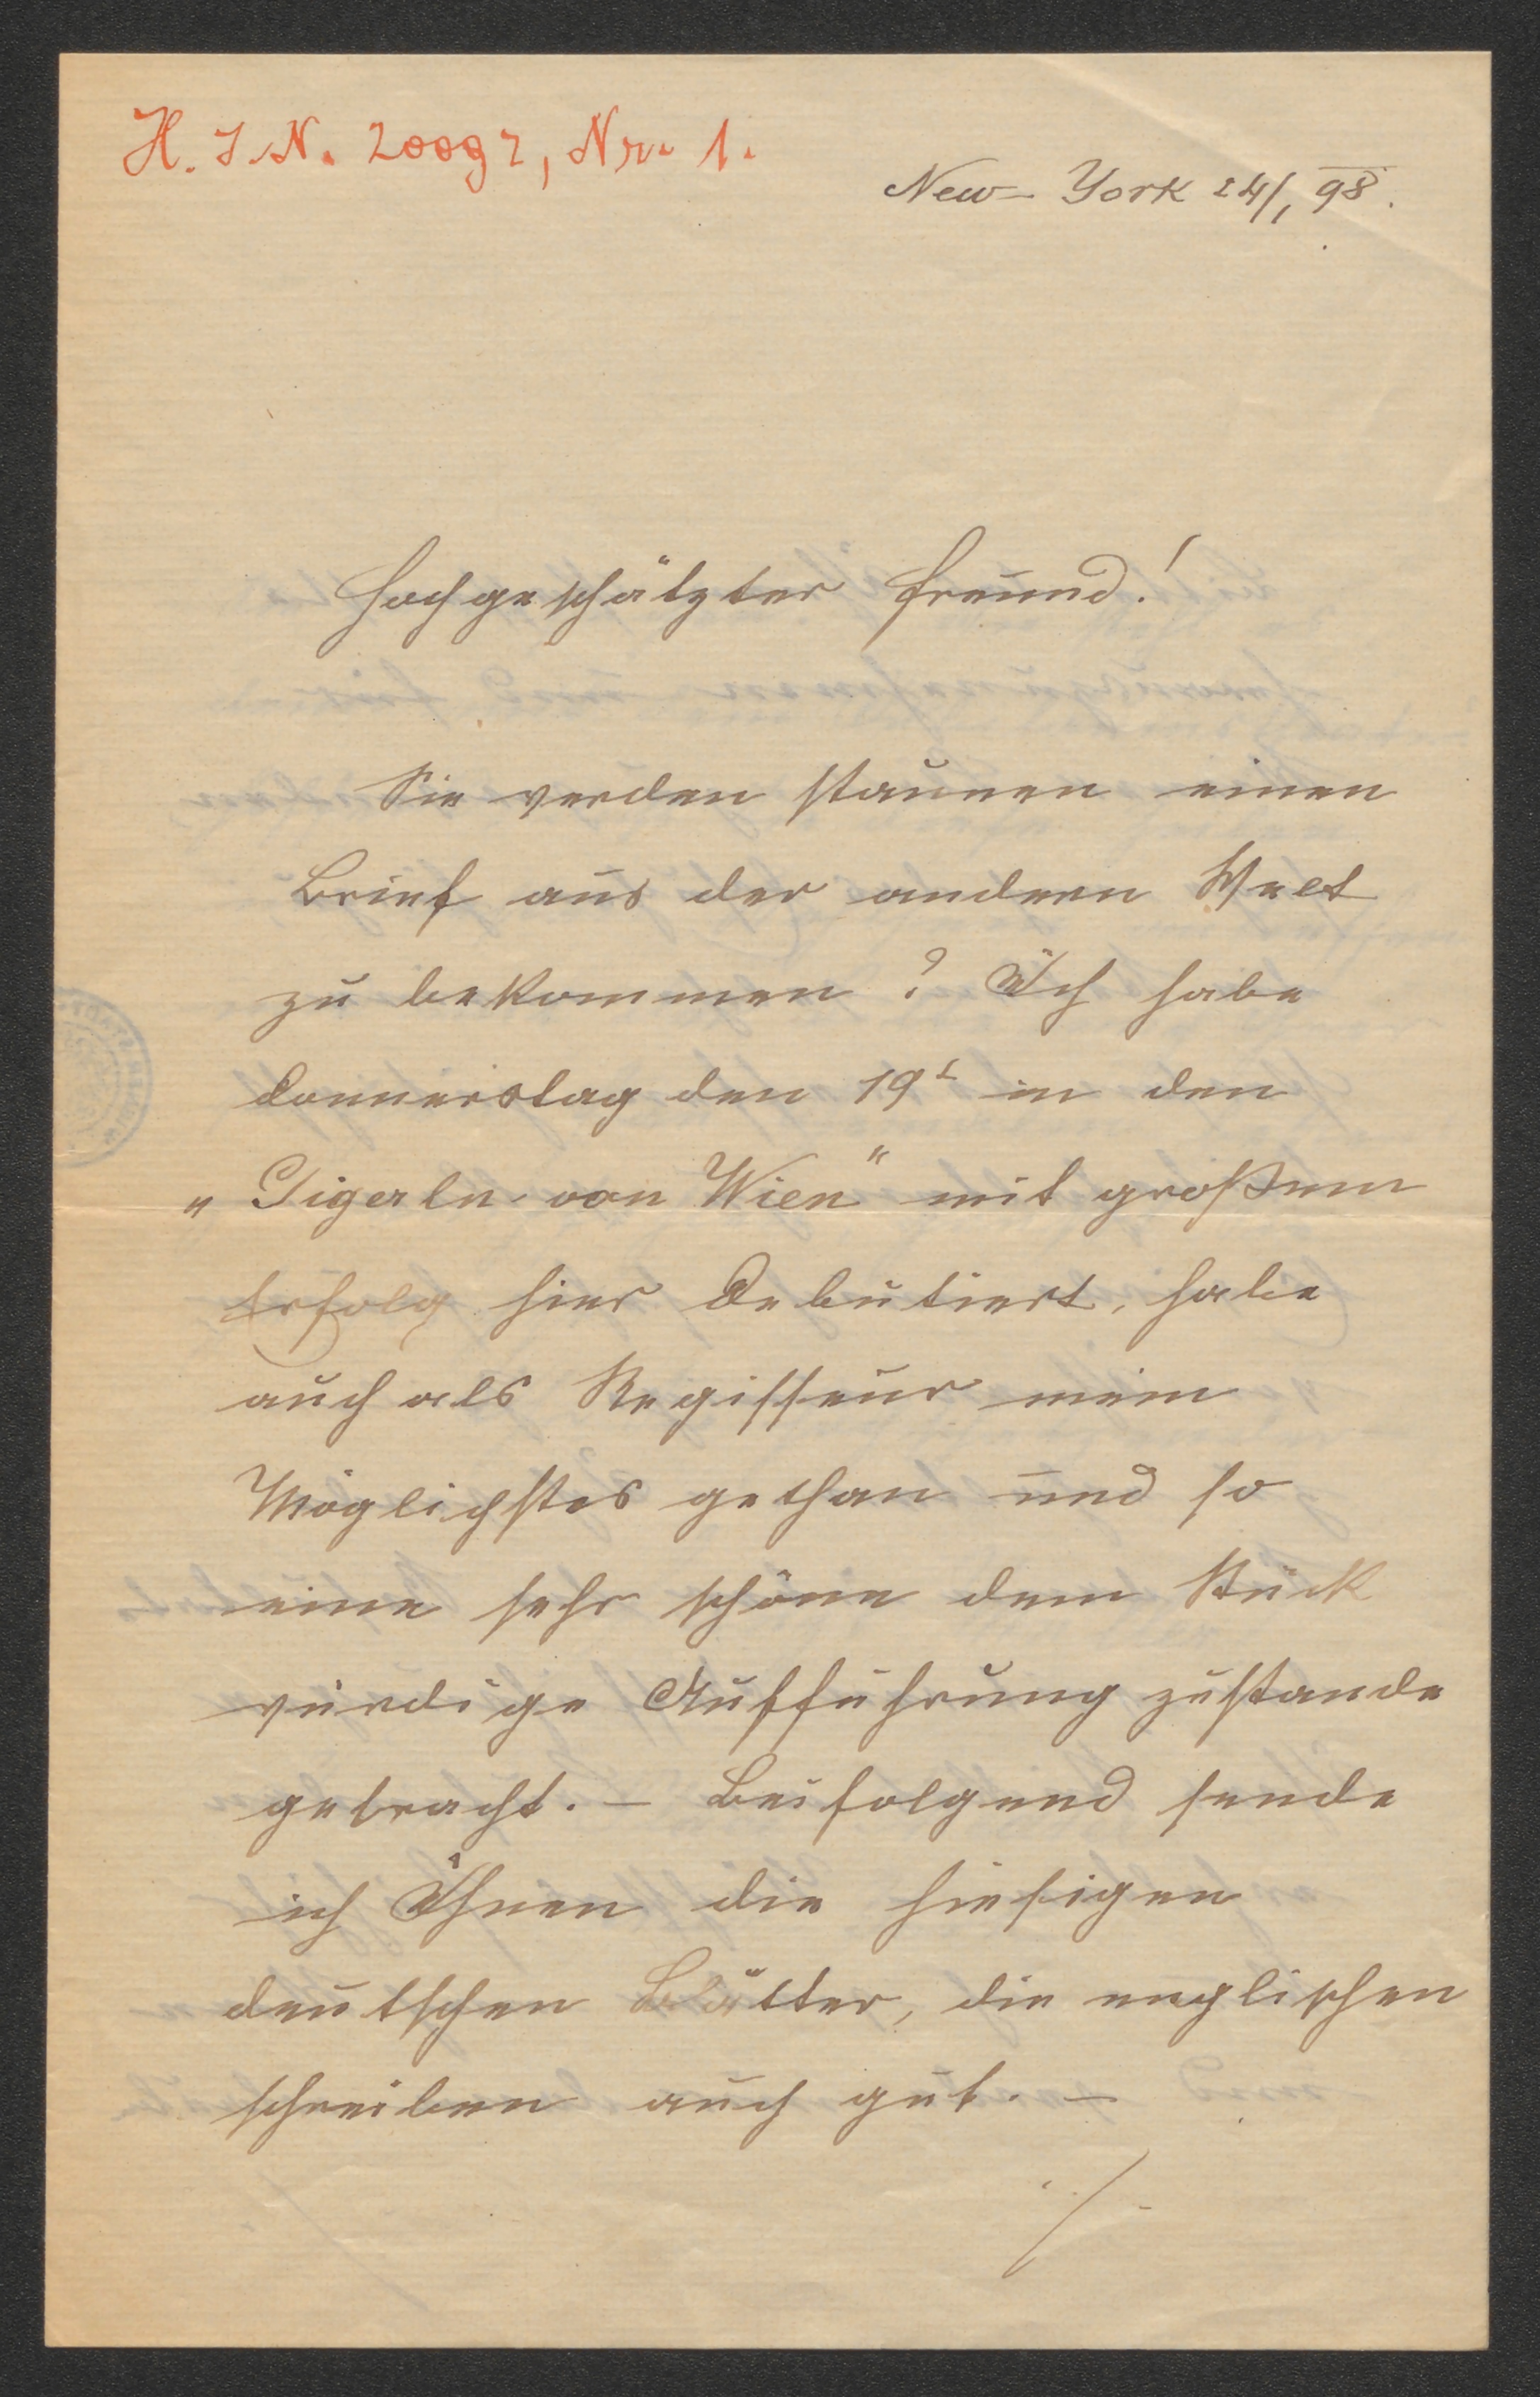 H. I. N. 20092, Nr. 1.
New-York 24/1 98.
Hochgeschätzter Freund!
Sie werden staunen einen
Brief aus der andern Welt
zu bekommen? Ich habe
Donnerstag den 19t in den
„Gigerln von Wien“ mit großem
Erfolg hier Debutiert, habe
auch als Regisseur mein
Möglichstes gethan und so
eine sehr schöne dem Stück
würdige Aufführung zustande
gebracht. – Beifolgend sende
ich Ihnen die hiesigen
deutschen Blätter, die englischen
schreiben auch gut. –
./.